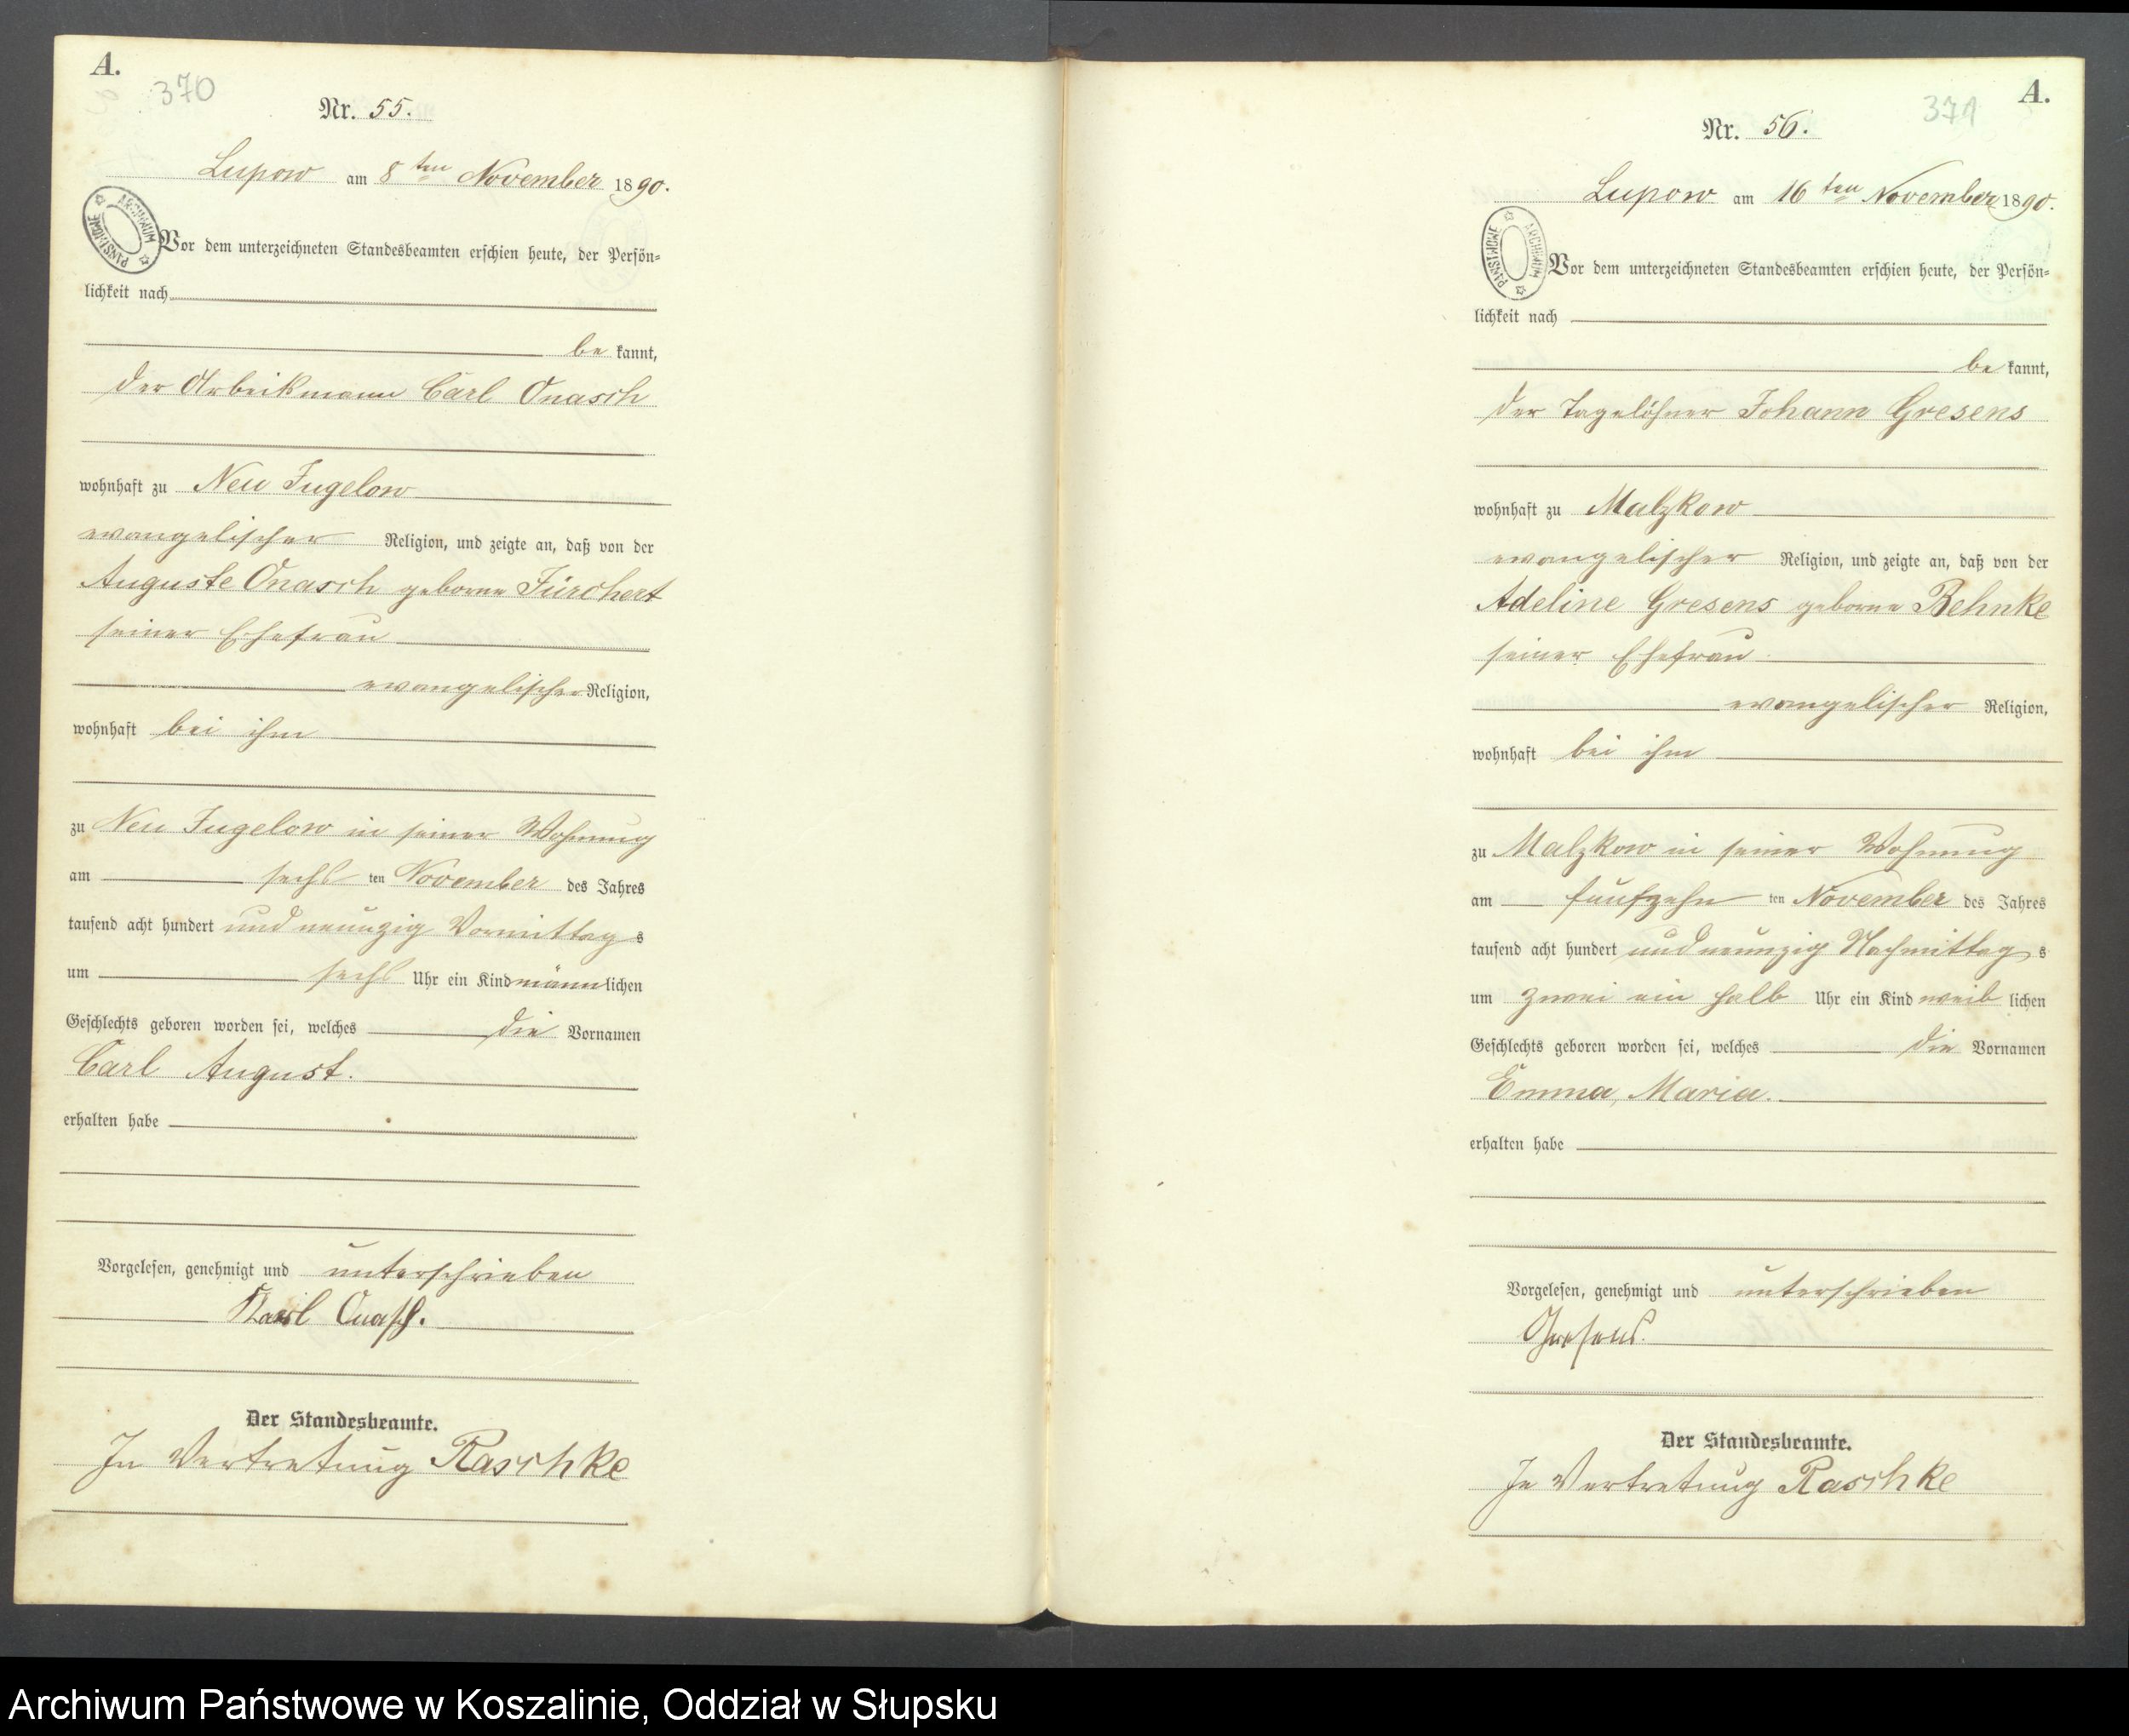 A.
370
Nr. 55.
Lupow am 8ten November 1890.
ARCHIWUM PAŃSTWOWE
Vor dem unterzeichneten Standesbeamten erschien heute, der Persön-
lichkeit nach
be kannt,
der Arbeitsmann Carl Onasch
wohnhaft zu Neu Jugelow
evangelischer Religion, und zeigte an, daß von der
Auguste Onasch geborne Fürchert
seiner Ehefrau
evangelischer Religion,
wohnhaft bei ihm
zu Neu Jugelow in seiner Wohnung
am sechs ten November des Jahres
tausend acht hundert und neunzig Vormittag s
um sechs Uhr ein Kind männlichen
Geschlechts geboren worden sei, welches die Vornamen
Carl August.
erhalten habe
Vorgelesen, genehmigt und unterschrieben
Karl Onasch.
Der Standesbeamte.
In Vertretung Raschke
A.
371
Nr. 56.
Lupow am 16ten November 1890.
ARCHIWUM PAŃSTWOWE
Vor dem unterzeichneten Standesbeamten erschien heute, der Persön-
lichkeit nach
be kannt,
der Tagelöhner Johann Gresens
wohnhaft zu Malzkow
evangelischer Religion, und zeigte an, daß von der
Adeline Gresens geborne Behnke
seiner Ehefrau
evangelischer Religion,
wohnhaft bei ihm
zu Malzkow in seiner Wohnung
am fünfzehn ten November des Jahres
tausend acht hundert und neunzig Nachmittag s
um zwei ein halb Uhr ein Kind weib lichen
Geschlechts geboren worden sei, welches die Vornamen
Emma, Maria.
erhalten habe
Vorgelesen, genehmigt und unterschrieben
Gresens.
Der Standesbeamte.
In Vertretung Raschke
Archiwum Państwowe w Koszalinie, Oddział w Słupsku